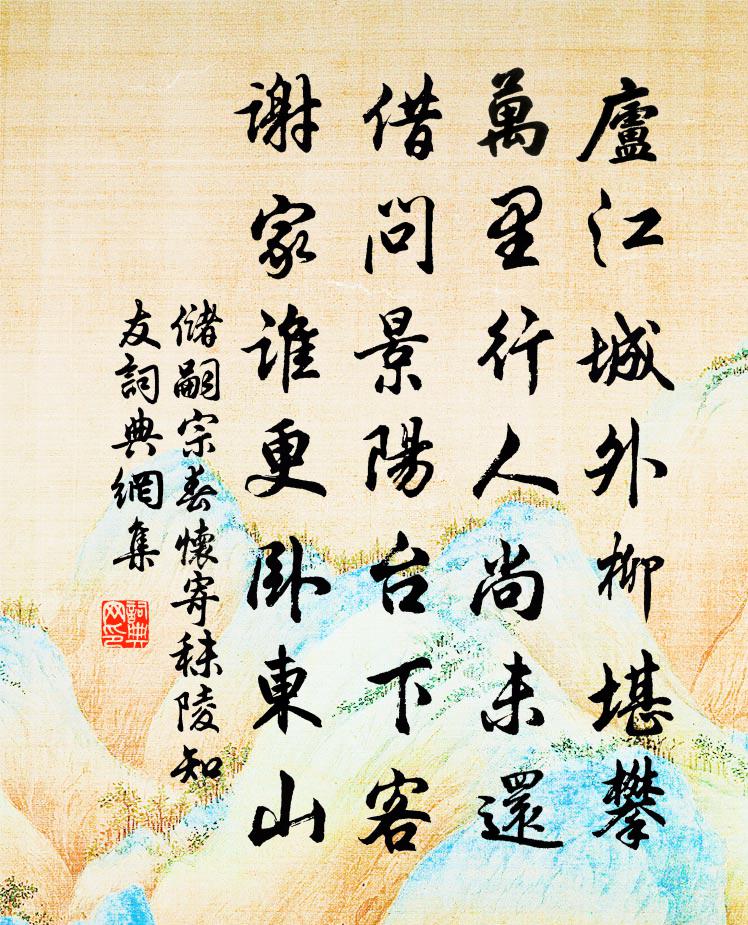 廬江城外柳堪攀
萬里行人尚未還
借問景陽台下客
謝家誰更臥東山
儲嗣宗春懷寄秣陵知
友詞典網集
詞典網印